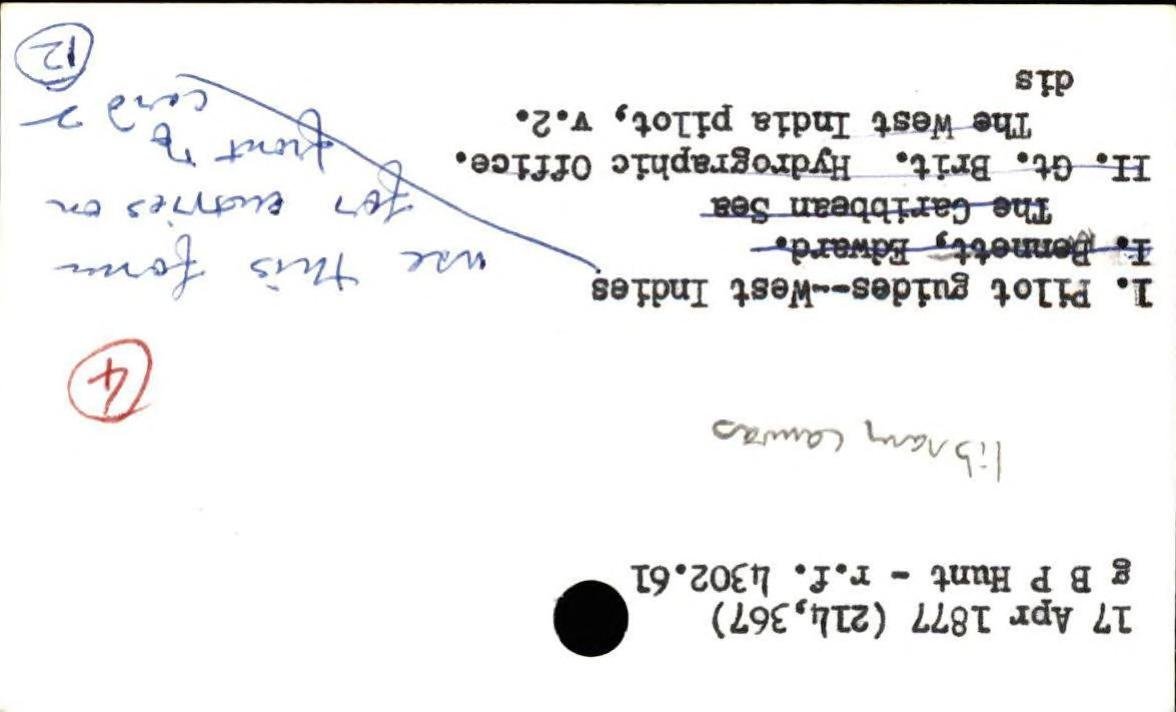 17 Apr 1877 (214,367)
g B P Hunt - r.f. 4302.61
library canvas
4
1. Pilot guides--West Indies
I. Bennett, Edward.
The Caribbean Sea
II. Gt. Brit. Hydrographic Office.
The West India pilot, v.2.
dis
use this form
for entries on
front of
card
12